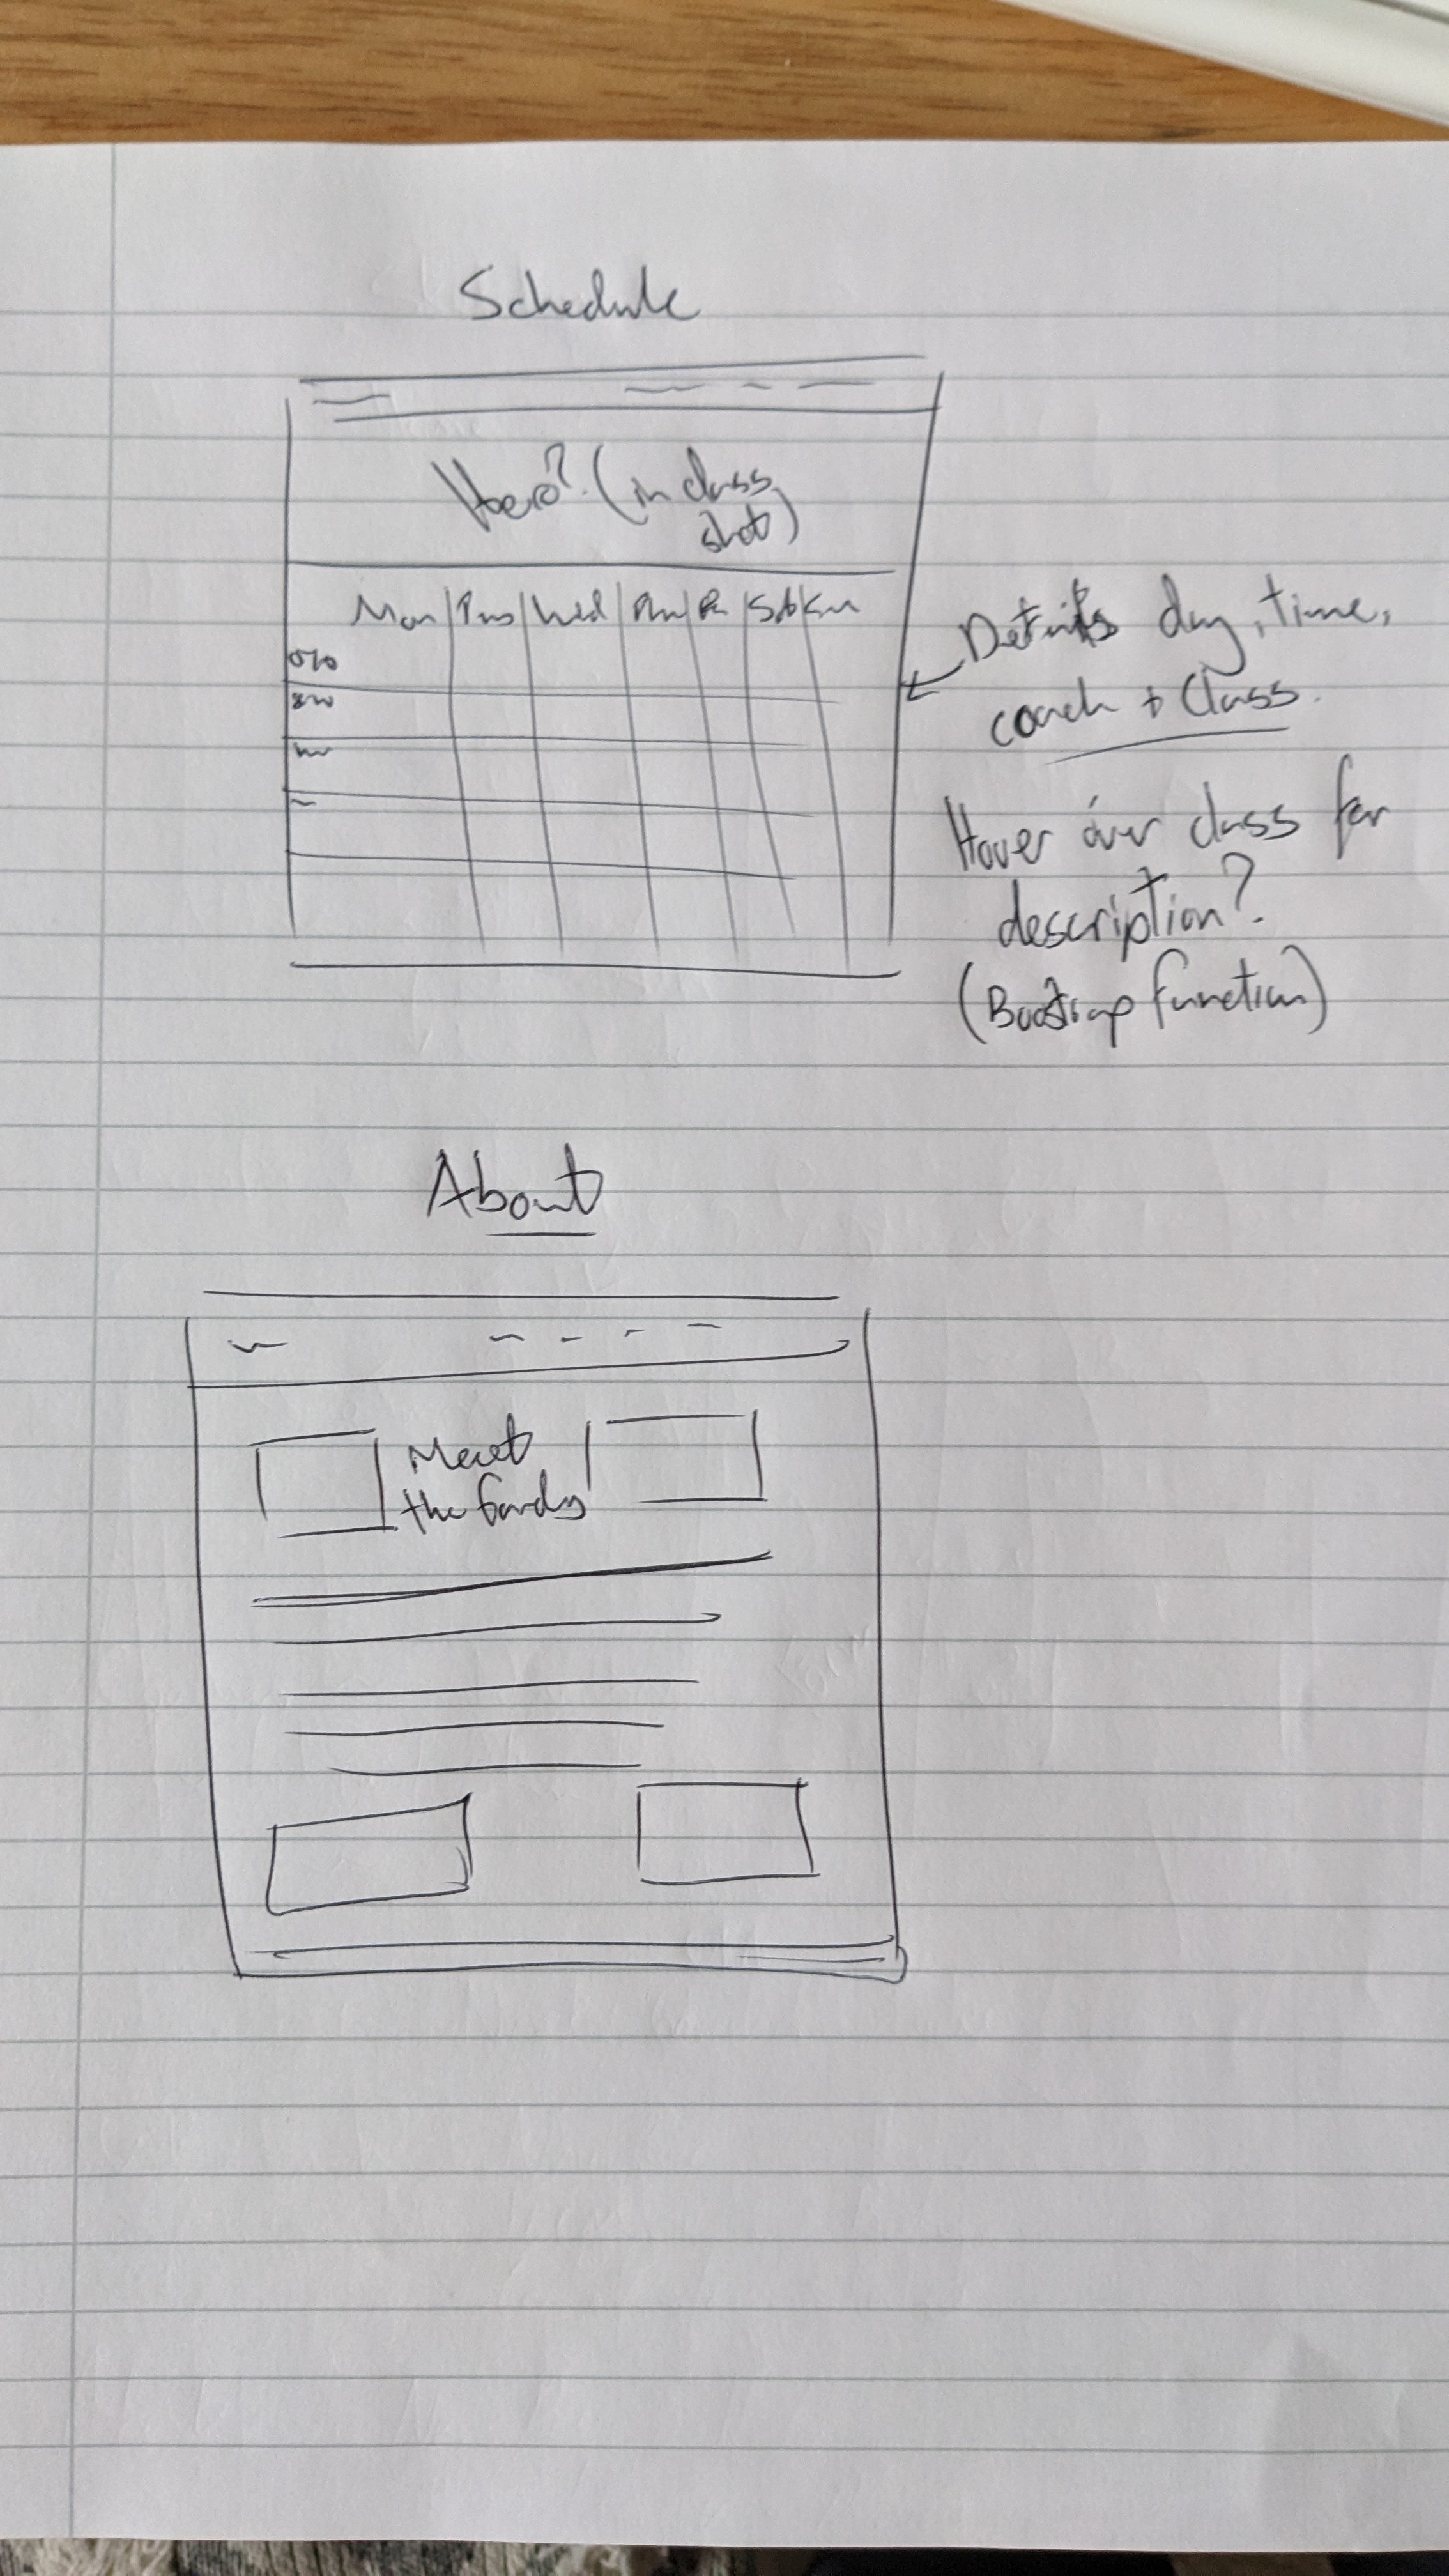 Schedule
Hero? (in class
shot)
Mon Tues Wed Thu Fri Sat Sun
Details day, time,
coach + Class.
Hover over class for
description?
(Bootstrap function)
About
Meet
the family